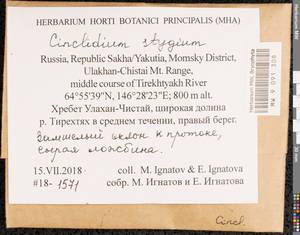 HERBARIUM HORTI BOTANICI PRINCIPALIS (MHA)
Cinclidium stygium
Russia, Republic Sakha/Yakutia, Momsky District,
Ulakhan-Chistai Mt. Range,
middle course of Tirekhtyakh River
64°55'39"N, 146°28'23"E; 800 m alt.
Хребет Улахан-Чистай, широкая долина
р. Тирехтях в среднем течении, правый берег.
Замшелый склон к протоке,
сырая ложбина.
15.VII.2018 coll. M. Ignatov & E. Ignatova
#18- 1571 собр. М. Игнатов и Е. Игнатова
Cincl.
MW 9 091 308